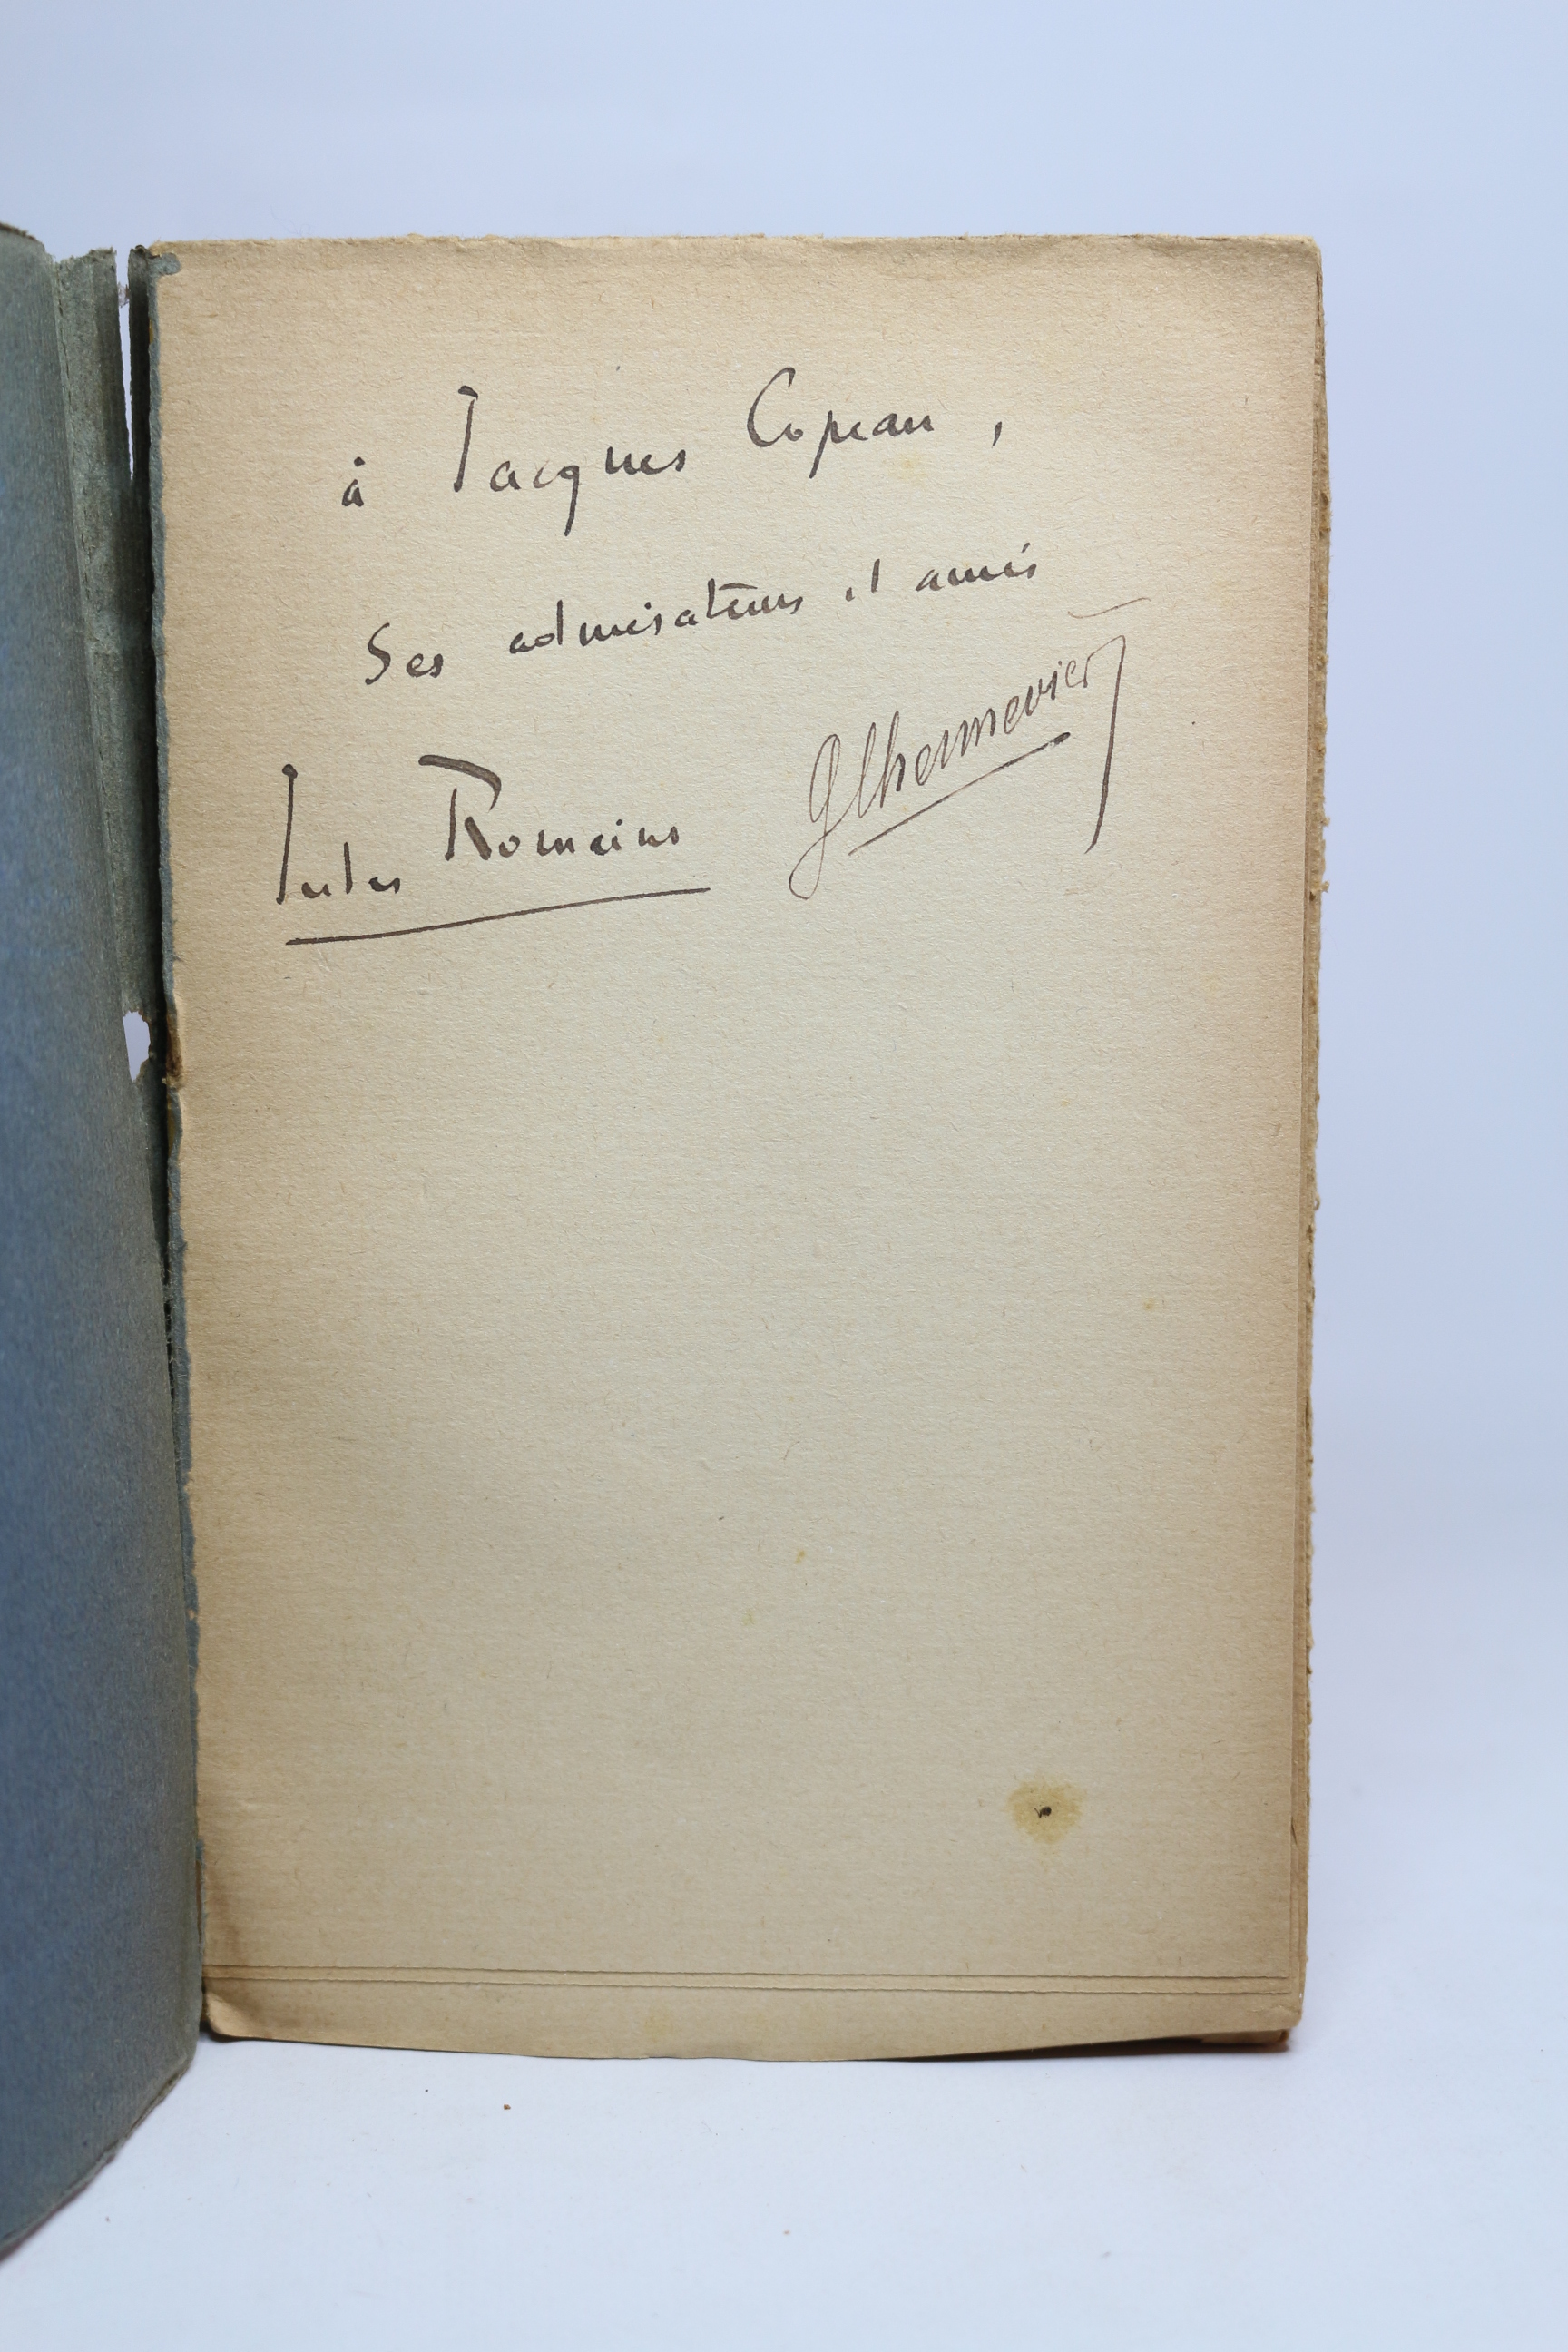 à Jacques Copeau,
Ses admirateurs et amis
Jules Romains
GChennevière